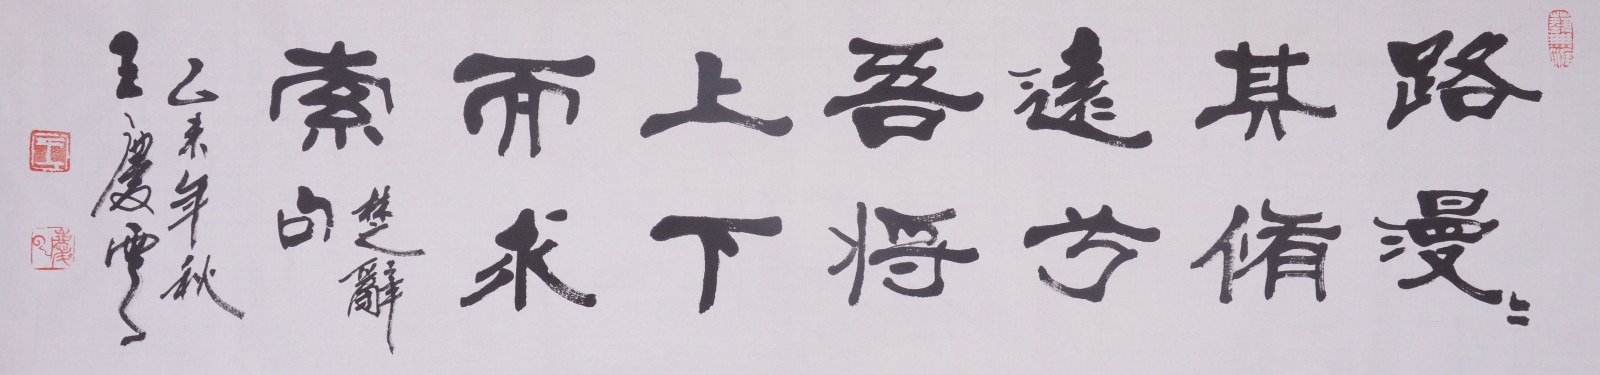 路漫〻
其脩
遠兮
吾将
上下
而求
索
楚辭
句
乙未年秋
王慶雲